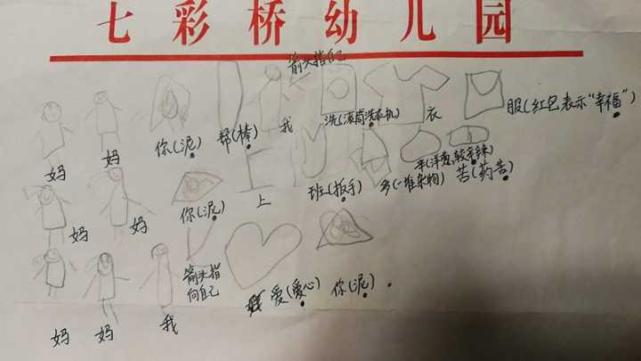 七彩桥幼儿园
箭头指自己
妈 妈 你(泥) 帮(棒) 我 洗(滚筒洗衣机) 衣 服(红包表示“幸福”)
妈 妈 你(泥) 上 班(扳手) 多(一堆杂物) 辛(洋葱,较辛辣) 苦(药苦)
妈 妈 我 箭头指向自己 爱(爱心) 你(泥)